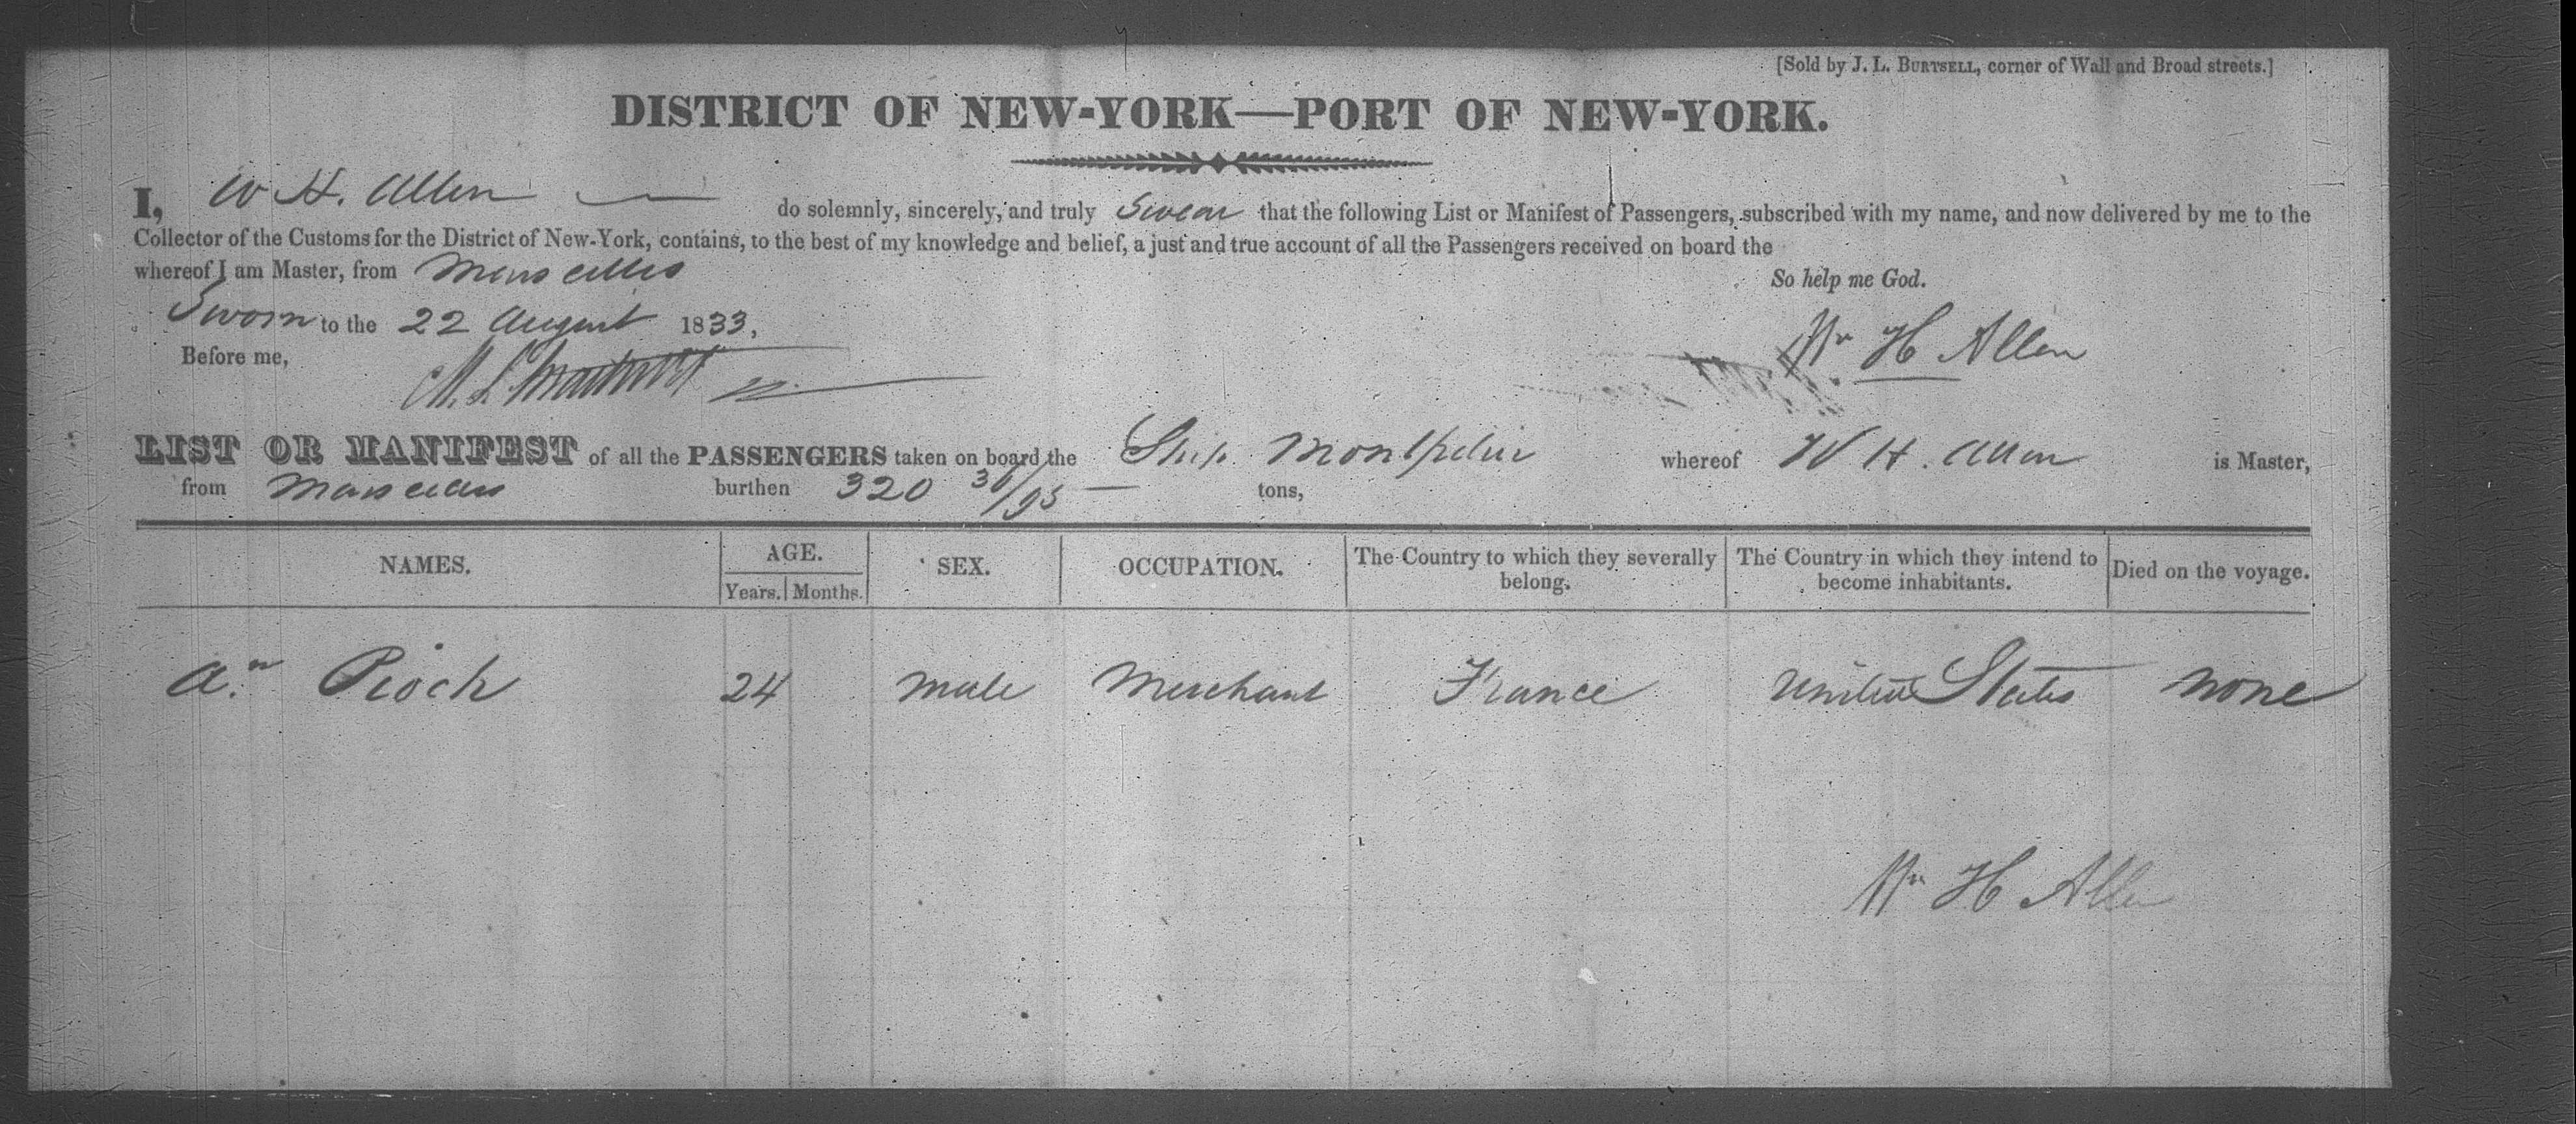 [Sold by J. L. BURTSELL, corner of Wall and Broad streets.]
DISTRICT OF NEW-YORK—PORT OF NEW-YORK.
I, W H. Allen do solemnly, sincerely, and truly Swear that the following List or Manifest of Passengers, subscribed with my name, and now delivered by me to the
Collector of the Customs for the District of New-York, contains, to the best of my knowledge and belief, a just and true account of all the Passengers received on board the
whereof I am Master, from Marseilles
So help me God.
Sworn to the 22 August 1833,
Wm H Allen
Before me,
LIST OR MANIFEST of all the PASSENGERS taken on board the Ship Montpelier whereof W H. Allen is Master,
from Marseilles burthen 320 36/95 tons,
NAMES. AGE. Years. Months. SEX. OCCUPATION. The Country to which they severally belong. The Country in which they intend to become inhabitants. Died on the voyage.
A.n Pioch 24 male Merchant France United States none
Wm H Allen